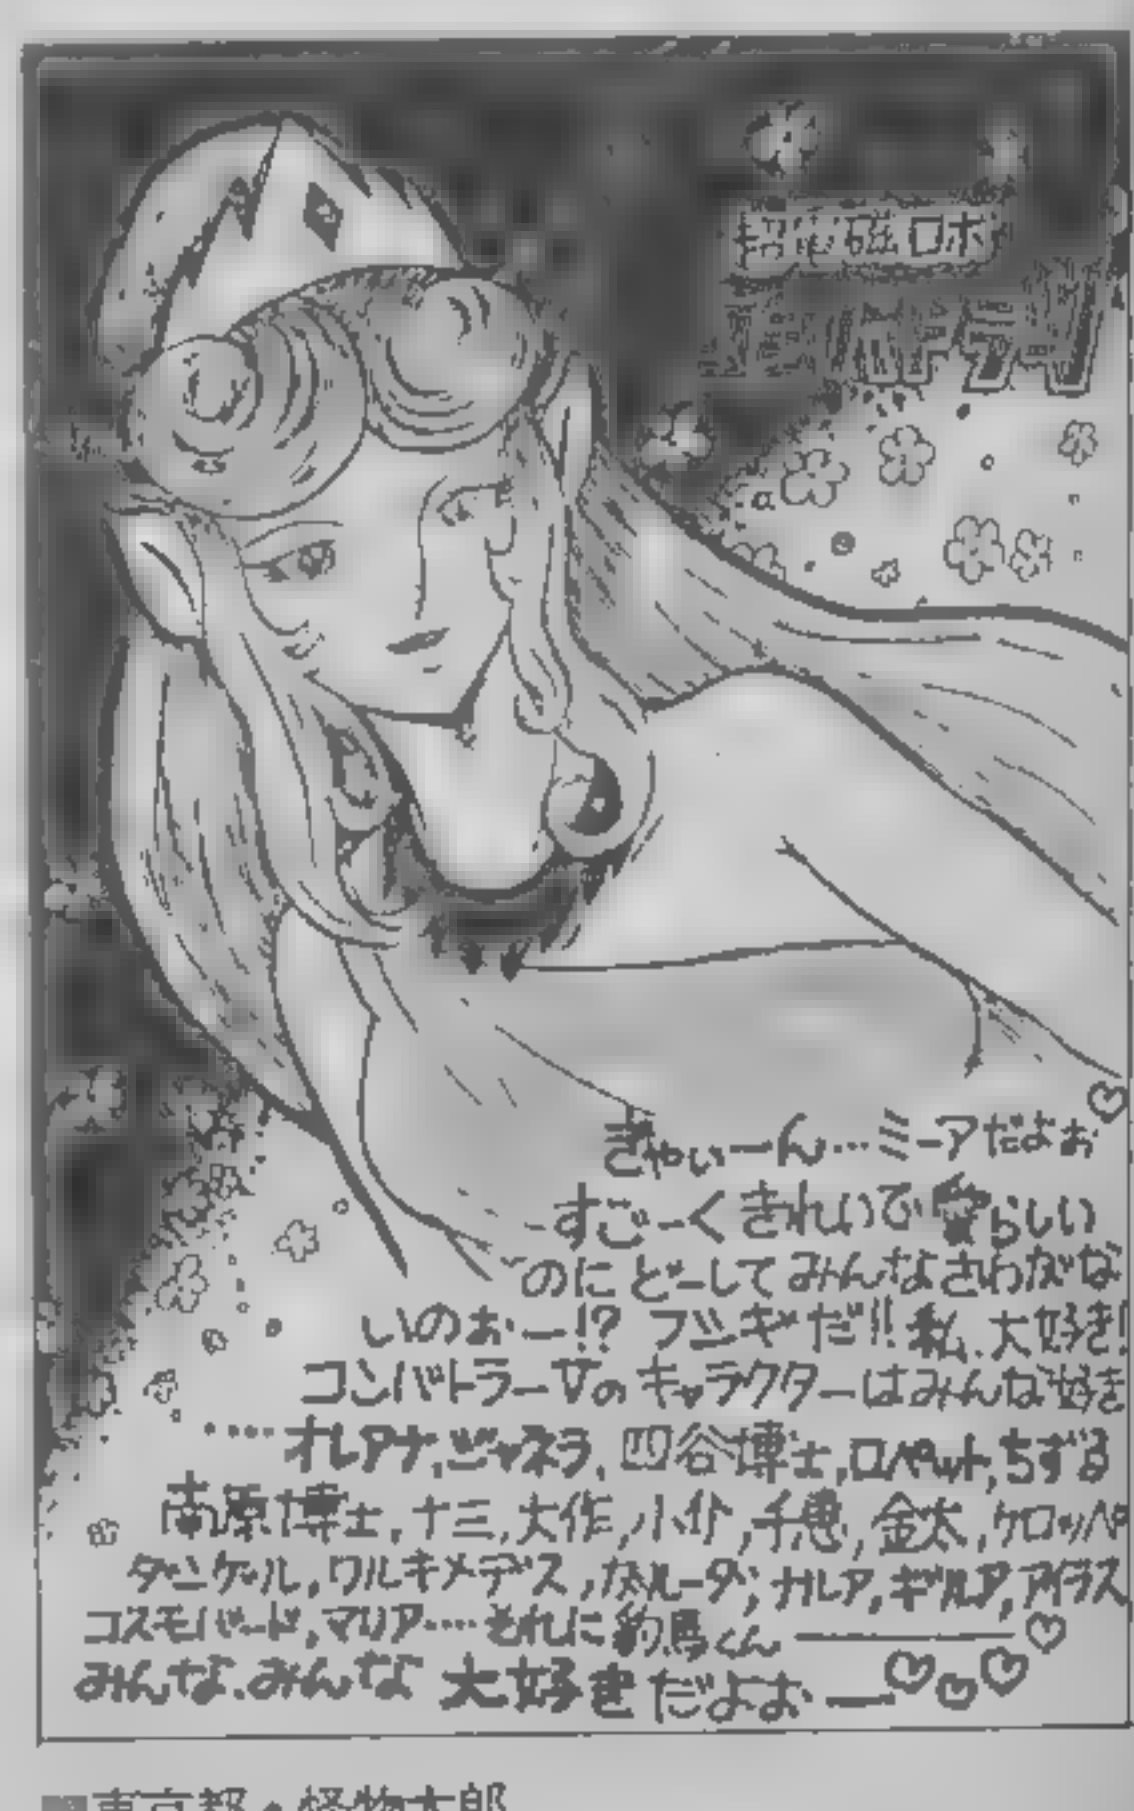 超電磁ロボ
ぎゃいーん…ミーアだよぉ♡
すごーくきれいで愛らしい
のにどーしてみんなさわがな
いのぉー!? フシギだ!! 私、大好き!
コンバトラーVのキャラクターはみんな好き
……オレアナ,ジャネラ,四谷博士,ロペット,ちずる
南原博士,十三,大作,小介,千恵,金太,ケロッペ
ダンケル,ワルキメデス,ガルーダ,ナルア,ギルア,アイラス
コスモバード,マリア……それに豹馬くん――♡
みんな.みんな 大好きだよぉー♡♡♡
■東京都・怪物太郎